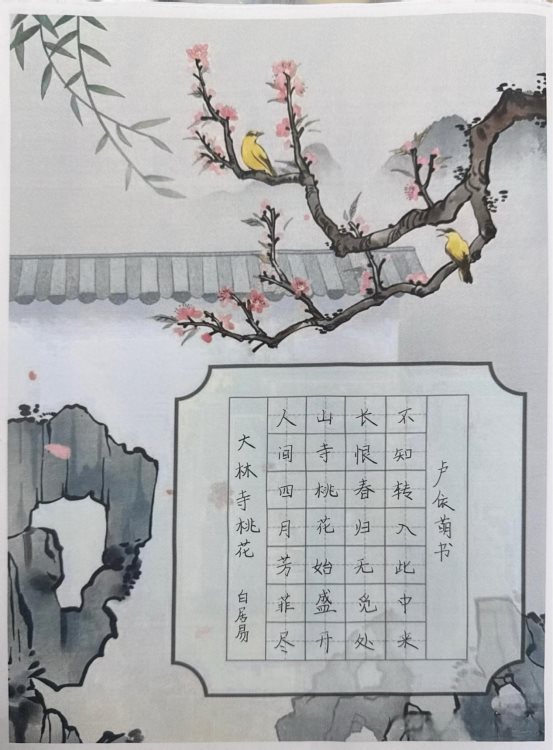 大林寺桃花 白居易
人间四月芳菲尽
山寺桃花始盛开
长恨春归无觅处
不知转入此中来
卢依萌书